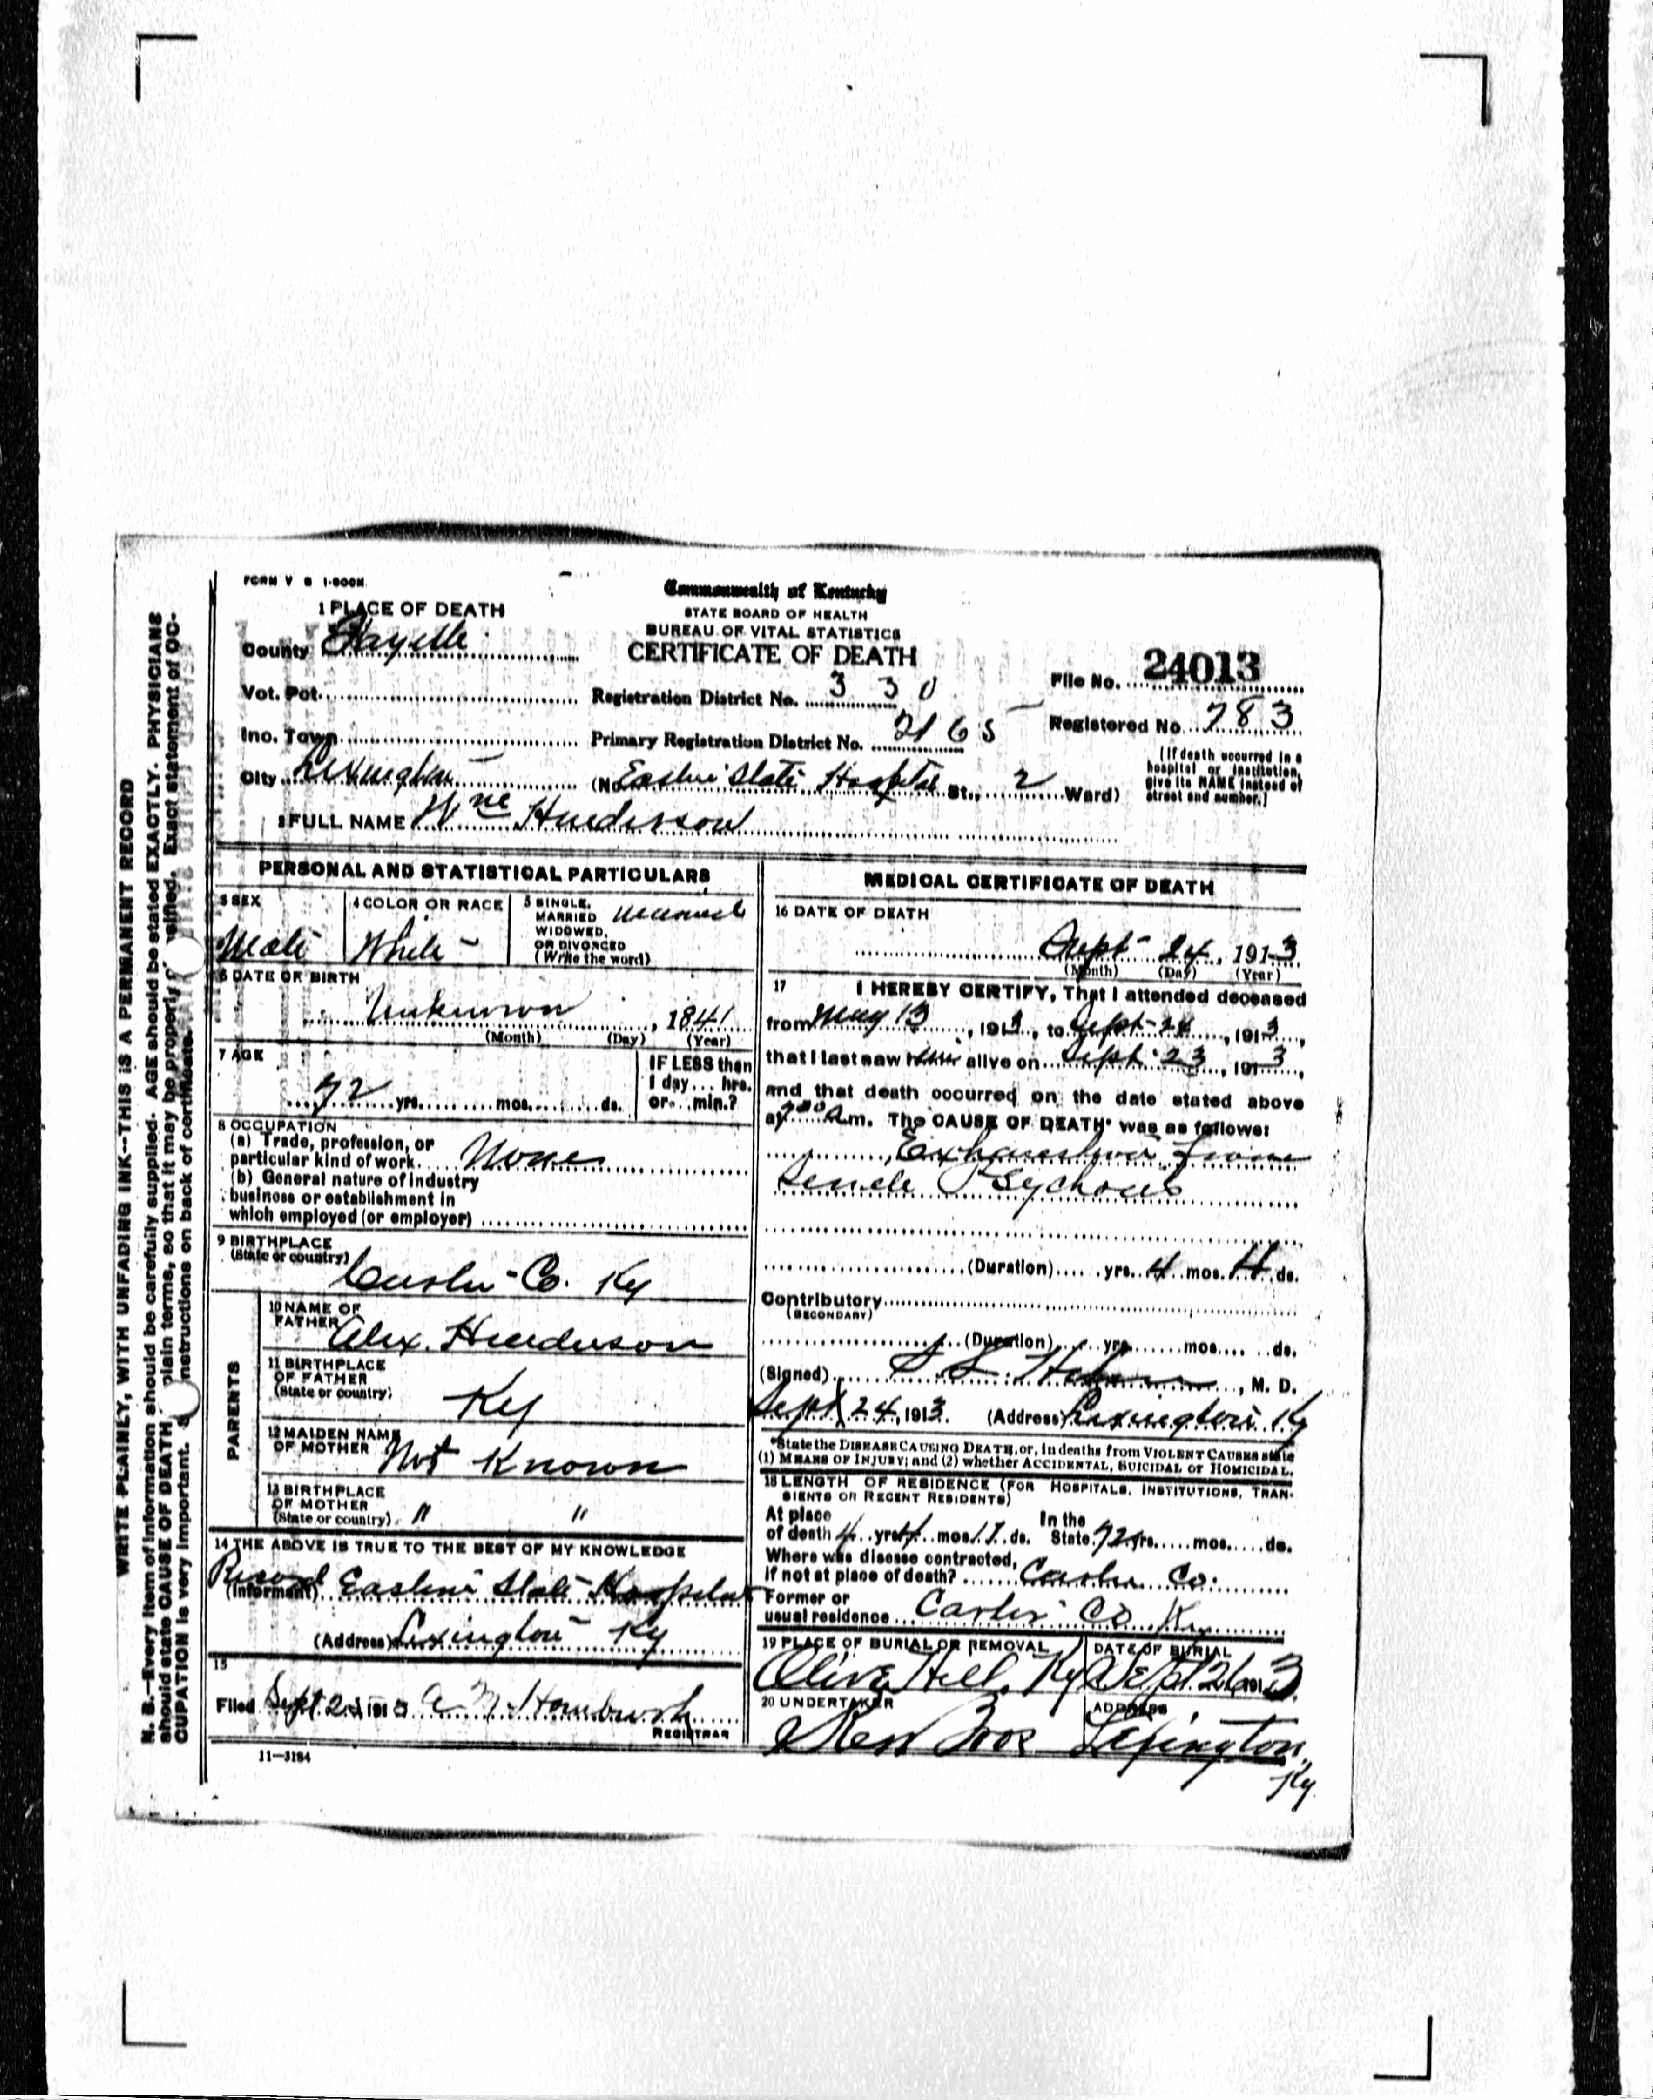 FORM V S 1-600M
Commonwealth of Kentucky
STATE BOARD OF HEALTH
BUREAU OF VITAL STATISTICS
CERTIFICATE OF DEATH
1 PLACE OF DEATH
County Fayette
Vot. Pct.
Inc. Town
City Lexington
Registration District No. 330
Primary Registration District No. 2165
File No. 24013
Registered No. 783
(No. Eastern State Hospital St., 2 Ward)
(If death occurred in a
hospital or institution,
give its NAME instead of
street and number.)
2 FULL NAME Wm Henderson
PERSONAL AND STATISTICAL PARTICULARS
3 SEX
Male
4 COLOR OR RACE
White
5 SINGLE,
MARRIED
WIDOWED,
OR DIVORCED
(Write the word)
Married
6 DATE OF BIRTH
Unknown, 1841
(Month) (Day) (Year)
7 AGE
72 yrs. mos. ds.
IF LESS than
1 day... hrs.
or... min.?
8 OCCUPATION
(a) Trade, profession, or
particular kind of work. None
(b) General nature of industry
business or establishment in
which employed (or employer)
9 BIRTHPLACE
(State or country)
Carter Co. Ky
PARENTS
10 NAME OF
FATHER Alex. Henderson
11 BIRTHPLACE
OF FATHER
(State or country)
Ky
12 MAIDEN NAME
OF MOTHER Not Known
13 BIRTHPLACE
OF MOTHER
(State or country) " "
14 THE ABOVE IS TRUE TO THE BEST OF MY KNOWLEDGE
(Informant) Record Eastern State Hospital
(Address) Lexington Ky
15
Filed Sept. 191
REGISTRAR
11—3184
MEDICAL CERTIFICATE OF DEATH
16 DATE OF DEATH
Sept 24, 1913
(Month) (Day) (Year)
17 I HEREBY CERTIFY, That I attended deceased
from May 13, 1913, to Sept 24, 1913,
that I last saw him alive on Sept. 23, 1913,
and that death occurred on the date stated above
at 7 a.m. The CAUSE OF DEATH* was as follows:
Exhaustion from
Senile Psychosis
(Duration) yrs. 4 mos. 11 ds.
Contributory
(SECONDARY)
(Duration) yrs. mos. ds.
(Signed) , M. D.
Sept 24, 1913. (Address) Lexington Ky
*State the DISEASE CAUSING DEATH, or, in deaths from VIOLENT CAUSES state
(1) MEANS OF INJURY; and (2) whether ACCIDENTAL, SUICIDAL or HOMICIDAL.
18 LENGTH OF RESIDENCE (FOR HOSPITALS, INSTITUTIONS, TRAN-
SIENTS OR RECENT RESIDENTS)
At place
of death yrs. 4 mos. 11 ds.
In the
State 72 yrs. mos. ds.
Where was disease contracted,
if not at place of death? Carter Co.
Former or
usual residence Carter Co Ky
19 PLACE OF BURIAL OR REMOVAL
Olive Hill, Ky
DATE OF BURIAL
Sept. 26 1913.
20 UNDERTAKER
Kerr Bros
ADDRESS
Lexington,
Ky
WRITE PLAINLY, WITH UNFADING INK--THIS IS A PERMANENT RECORD
N. B.—Every item of information should be carefully supplied. AGE should be stated EXACTLY. PHYSICIANS
should state CAUSE OF DEATH plain terms, so that it may be properly Exact statement of OC-
CUPATION is very important. instructions on back of certificate.